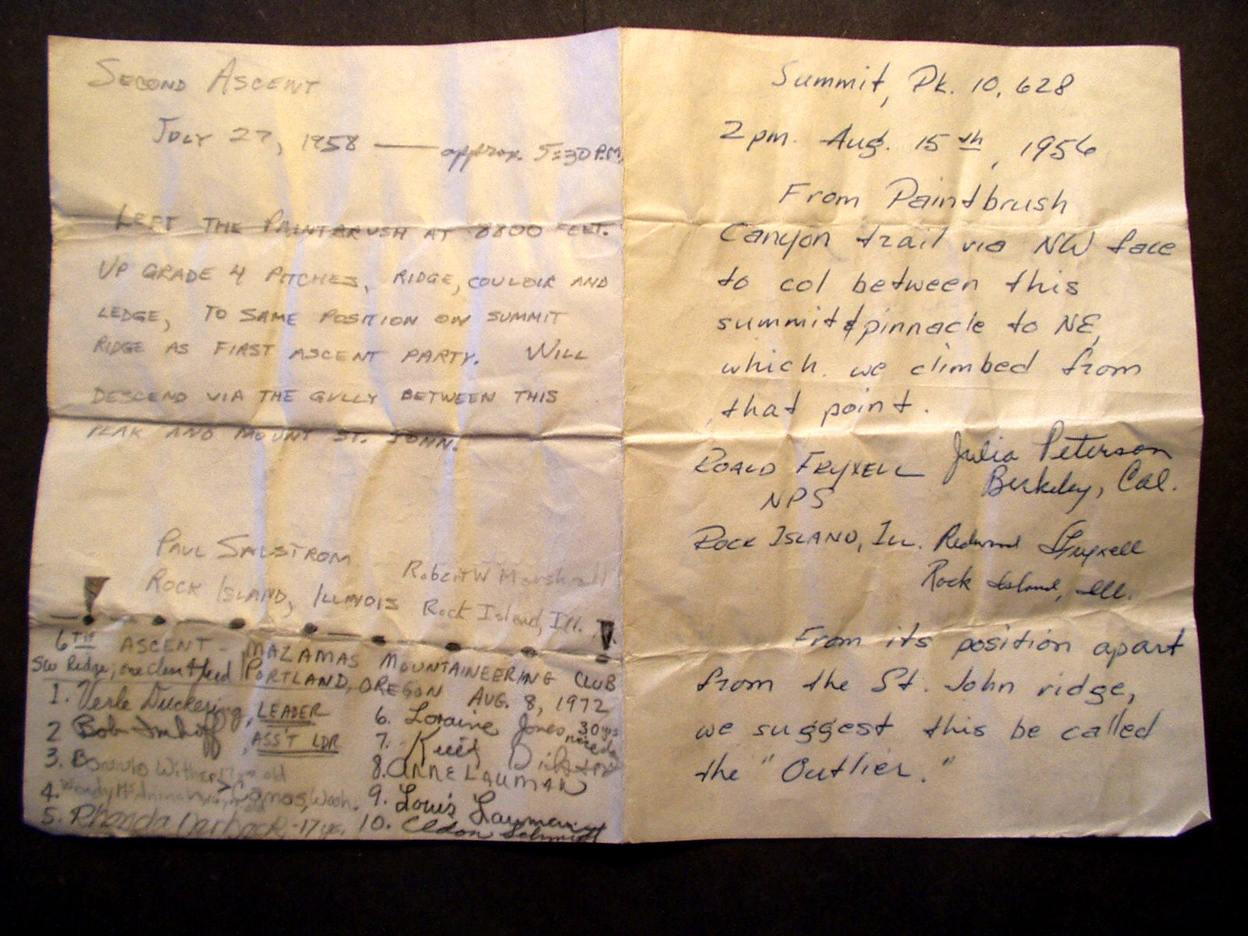 SECOND ASCENT
JULY 27, 1958 — approx. 5:30 P.M.
LEFT THE PAINTBRUSH AT 8800 FEET.
UP GRADE 4 PITCHES, RIDGE, COULOIR AND
LEDGE, TO SAME POSITION ON SUMMIT
RIDGE AS FIRST ASCENT PARTY. WILL
DESCEND VIA THE GULLY BETWEEN THIS
PEAK AND MOUNT ST. JOHN.
PAUL SALSTROM
ROCK ISLAND, ILLINOIS
Robert W Marshall
Rock Island, Ill.
6TH ASCENT - MAZAMAS MOUNTAINEERING CLUB
SW Ridge; one
PORTLAND, OREGON AUG. 8, 1972
1. Verle Duckering, LEADER
2 Bob Imhoff, ASS'T LDR
3. Bonnie old
4. Wendy Camas, Wash.
5. Rhonda -17 yr.
6. Loraine Jones, 30 yrs
7.
8. ANNE LAUMAN
9. Louis Lauman
10. Eldon Schmidt
Summit, Pk. 10,628
2 pm. Aug. 15th, 1956
From Paintbrush
Canyon trail via NW face
to col between this
summit & pinnacle to NE,
which we climbed from
that point.
ROALD FRYXELL
NPS
ROCK ISLAND, ILL.
Julia Peterson
Berkeley, Cal.
Redwood Fryxell
Rock Island, Ill.
From its position apart
from the St. John ridge,
we suggest this be called
the "Outlier."